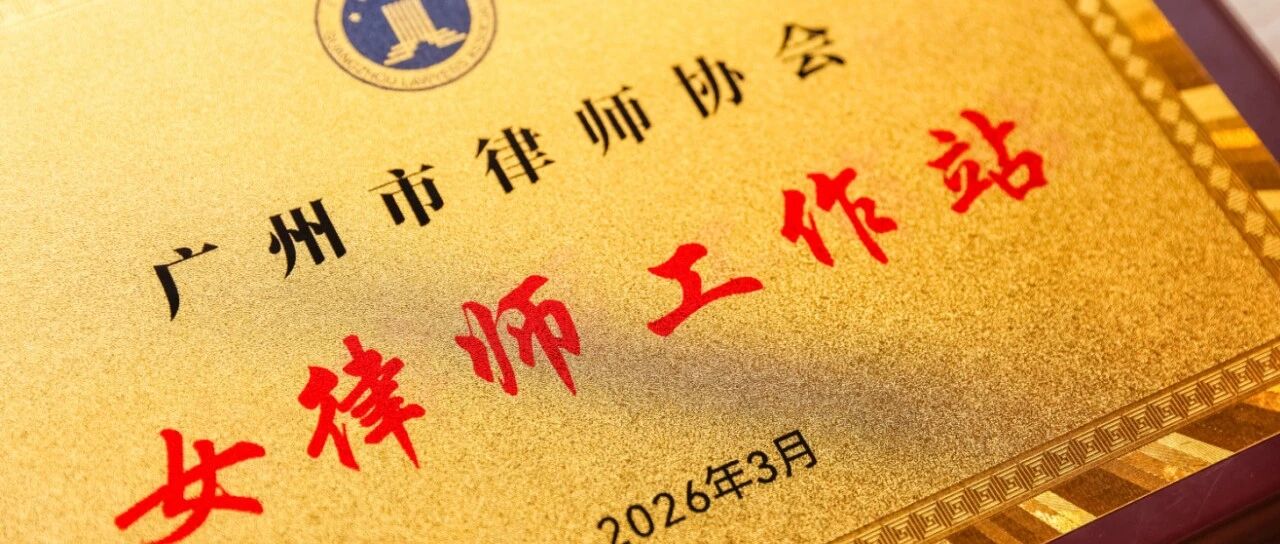 GUANGZHOU LAWYERS ASSOCIATION
广州市律师协会
女律师工作站
2026年3月